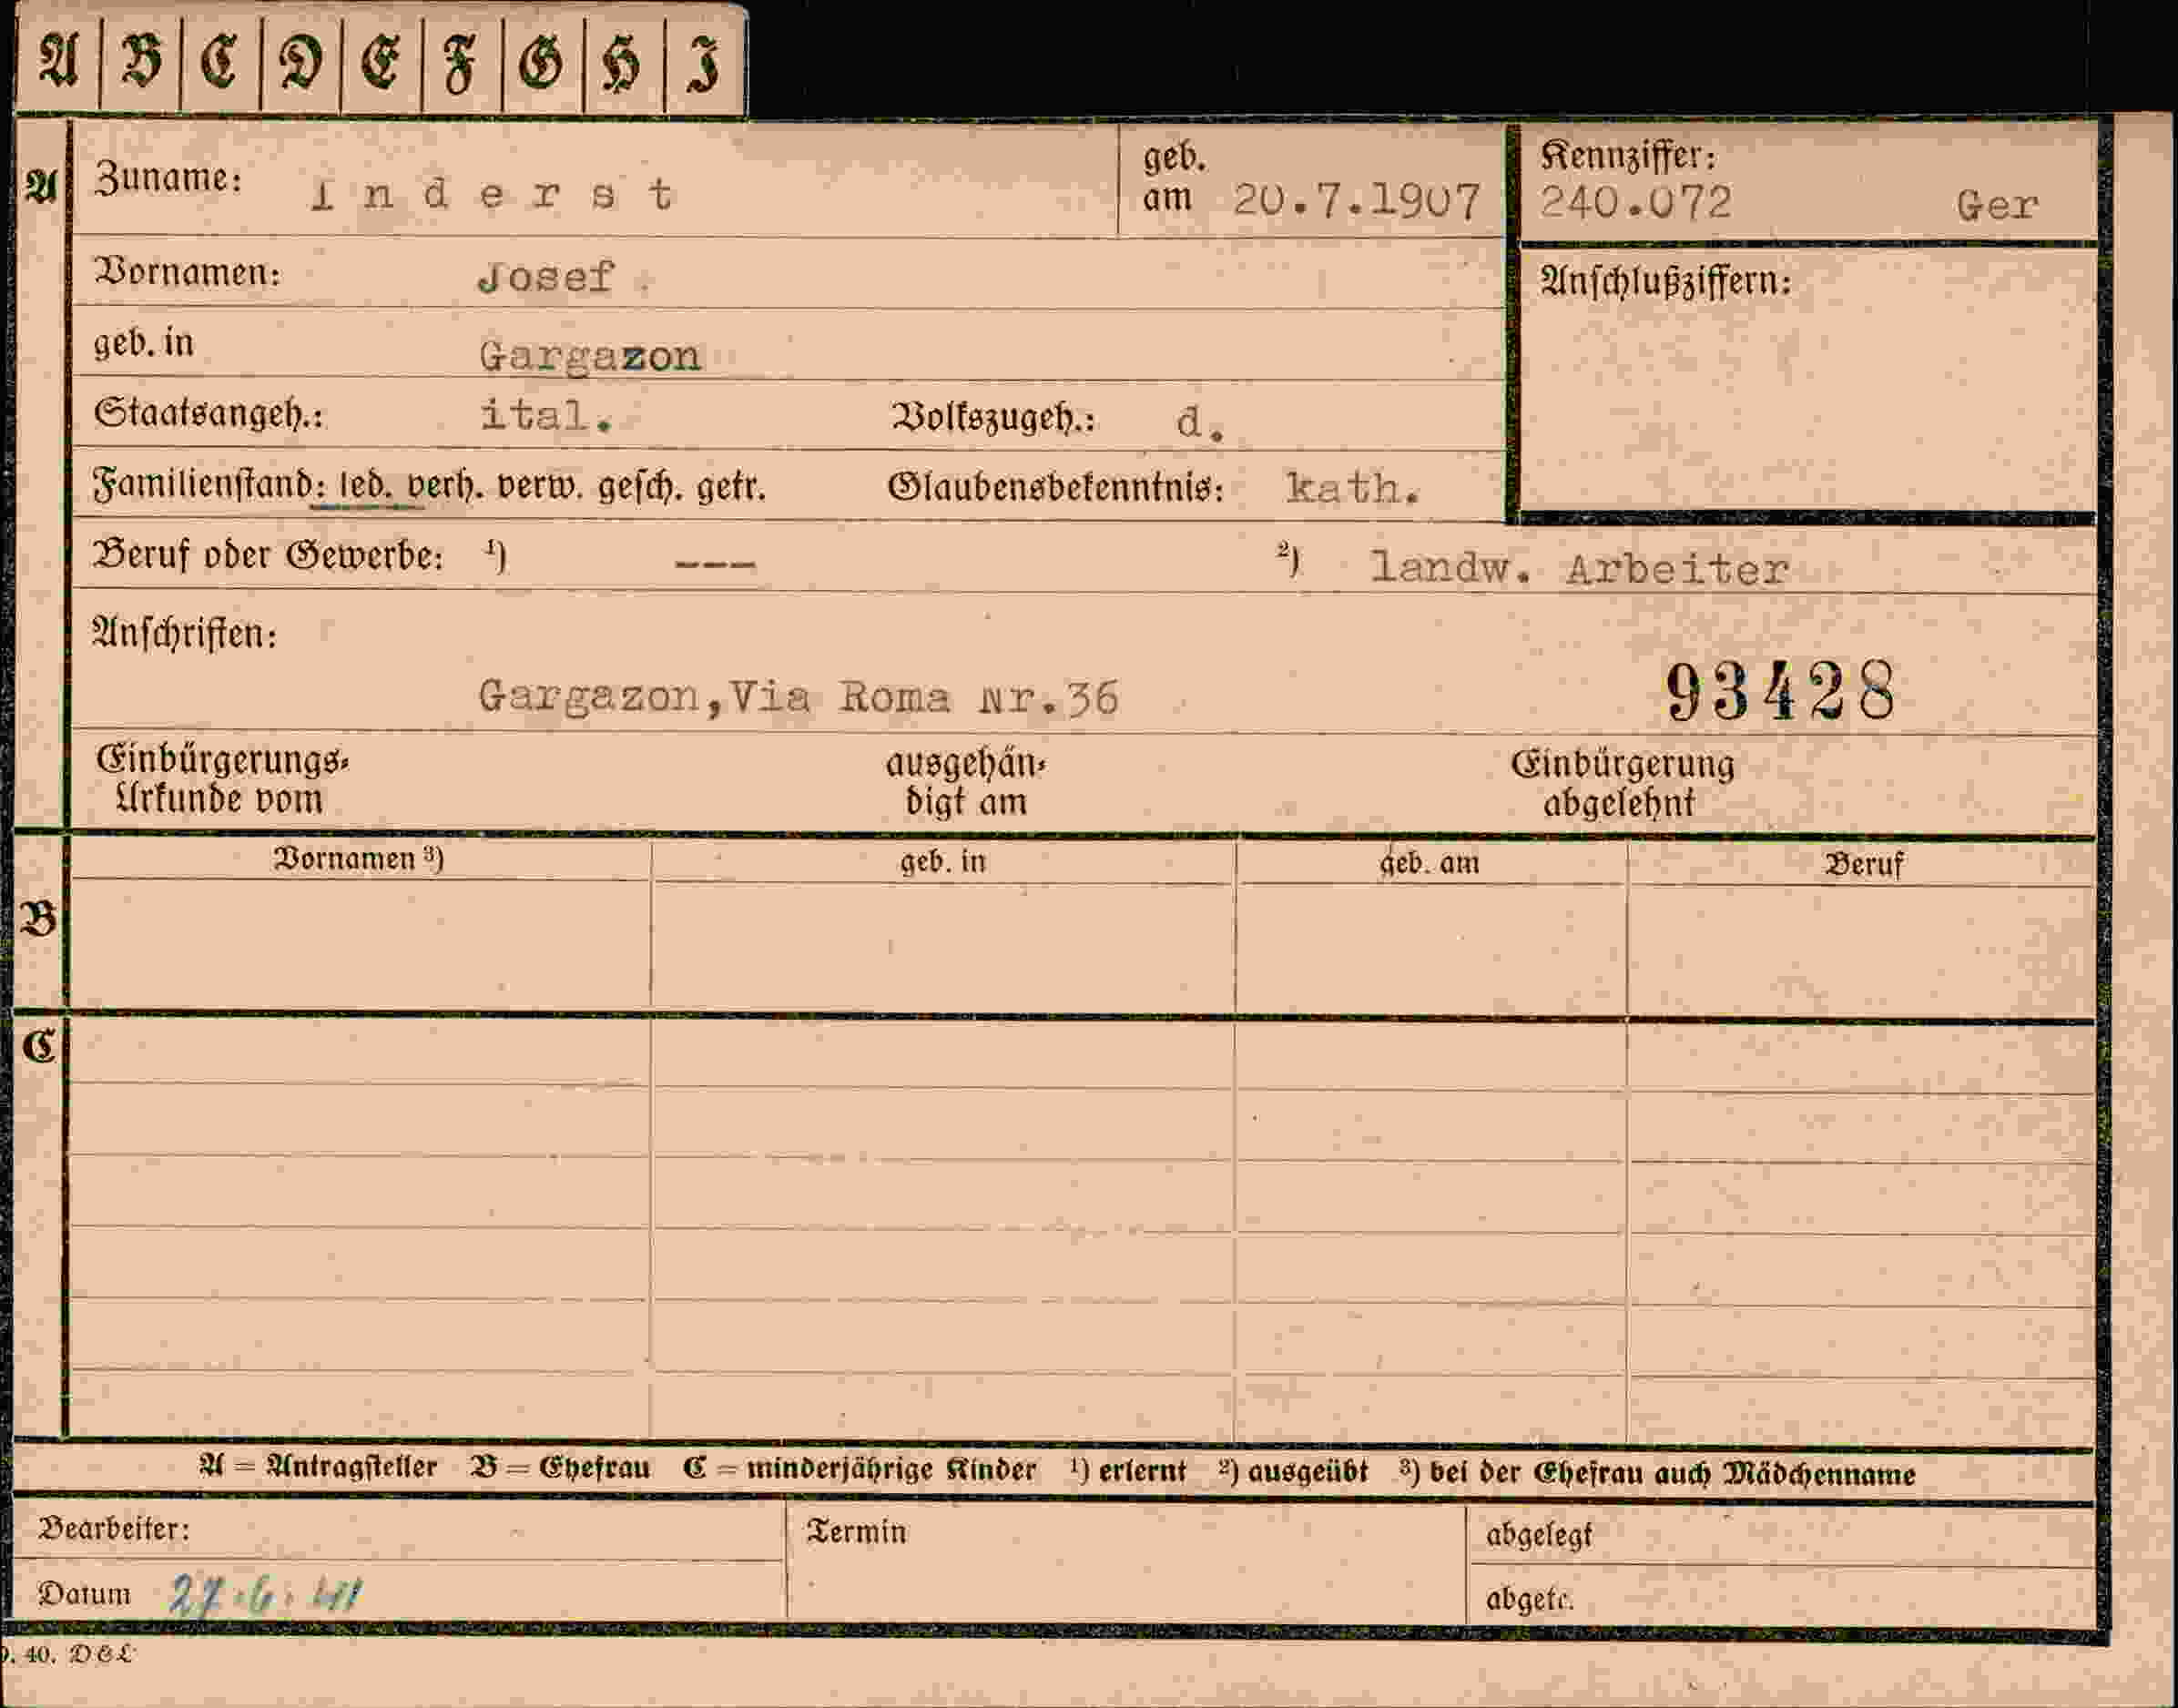 A B C D E F G H I
A Zuname: I n d e r s t geb. am 20.7.1907 Kennziffer: 240.072 Ger
Vornamen: Josef Anschlußziffern:
geb. in Gargazon
Staatsangeh.: ital. Volkszugeh.: d.
Familienstand: led. verh. verw. gesch. getr. Glaubensbekenntnis: kath.
Beruf oder Gewerbe: ¹) --- ²) landw. Arbeiter
Anschriften:
Gargazon,Via Roma Nr.36 93428
Einbürgerungs- ausgehän- Einbürgerung
Urkunde vom digt am abgelehnt
Vornamen ³) geb. in geb. am Beruf
B
C
A = Antragsteller B = Ehefrau C = minderjährige Kinder ¹) erlernt ²) ausgeübt ³) bei der Ehefrau auch Mädchenname
Bearbeiter: Termin abgelegt
Datum 27.6.41 abgetr.
40. D&L